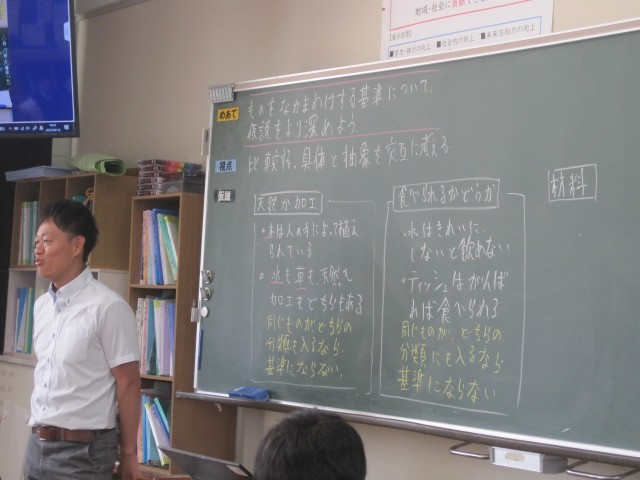 地域・社会に貢献
【重点目標】
■学力・体力の向上 ■社会性の向上 ■未来志向力の向上
めあて
ものをなかまわけする基準について、
仮説をより深めよう
視点
比較、具体と抽象を交互に考える
仮説
天然か加工
・木は人の手によって植え
られている
・水も草も、天然も
加工もどちらもある
同じものが、どちらの
分類にも入るなら、
基準にならない。
食べられるかどうか
・水はきれいに
しないと飲めない
・ティッシュはがんば
れば食べられる
同じものが、どちらの
分類にも入るなら
基準にならない
材料